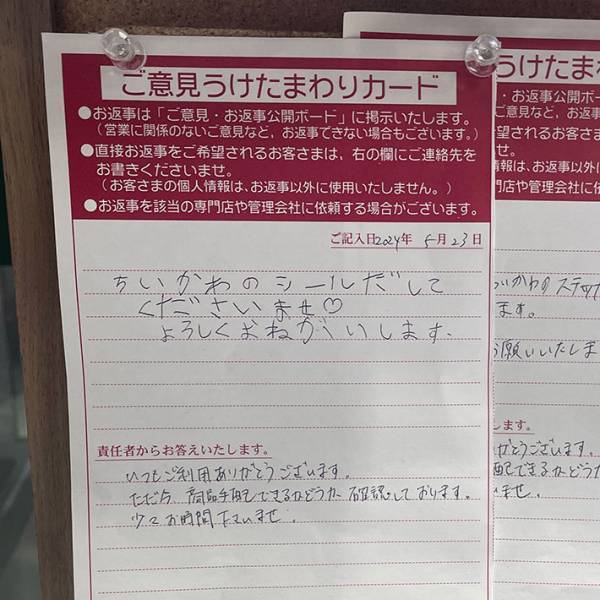 ご意見うけたまわりカード
●お返事は「ご意見・お返事公開ボード」に掲示いたします。
（営業に関係のないご意見など，お返事できない場合もございます。）
●直接お返事をご希望されるお客さまは，右の欄にご連絡先を
お書きくださいませ。
（お客さまの個人情報は、お返事以外に使用いたしません。）
●お返事を該当の専門店や管理会社に依頼する場合がございます。
ご記入日2024年 5月23日
ちいかわのシールだして
くださいませ♡
よろしくおねがいします.
責任者からお答えいたします。
いつもご利用ありがとうございます。
ただ今、商品手配できるかどうか確認しております。
少々お時間下さいませ.
うけたま
・お返事公開
望されるお客さま
せ。
報は、お返事以外に
門店や管理会社に依
いかわのステッ
ます。
お願いいたしま
します。
がとうございます。
配できるかどうか
ませ.